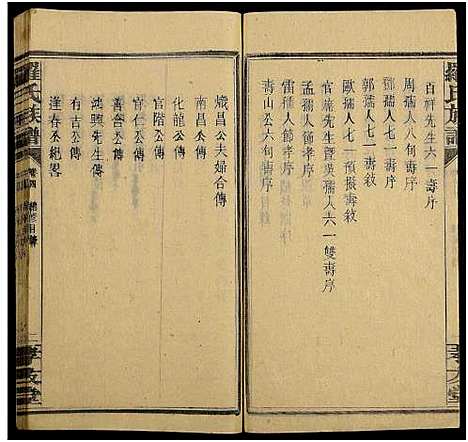 羅氏族譜
百祥先生六一壽序
周孺人八旬壽序
鄧孺人七一壽敘
郭孺人七一壽敘
歐孺人七一預撥壽敘
官流先生暨吳孺人六一雙壽序
孟孺人節孝序
雷孺人節孝序
青山公六壽序
熾昌公夫婦合傳
南昌公傳
化龍公傳
官階公傳
官仁公傳
善合公傳
鴻興先生傳
有吉公傳
逢春公紀畧
羅氏族譜
卷四
二
孝友堂